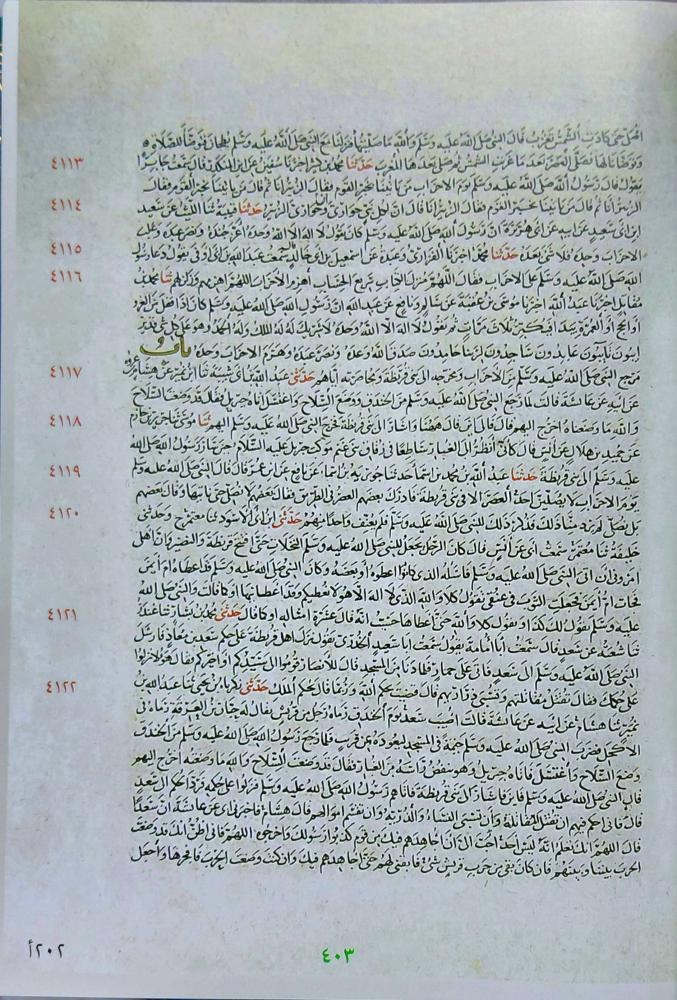 افعل حتى كادت الشمس تغرب قال النبي صلى الله عليه وسلم والله ما صليتها فنزلنا مع النبي صلى الله عليه وسلم بطحان فتوضأ للصلاة
٤١١٣ وتوضأنا لها فصلى العصر بعد ما غربت الشمس ثم صلى بعدها المغرب حدثنا محمد بن كثير اخبرنا سفين عن ابن المنكدر قال سمعت جابرا
يقول قال رسول الله صلى الله عليه وسلم يوم الاحزاب من يأتينا بخبر القوم فقال الزبير انا ثم قال من يأتينا بخبر القوم فقال
٤١١٤ الزبير انا ثم قال من يأتينا بخبر القوم فقال الزبير انا قال ان لكل نبي حواري وان حواري الزبير حدثنا قتيبة ثنا الليث عن سعيد
ابن ابي سعيد عن ابيه عن ابي هريرة ان رسول الله صلى الله عليه وسلم كان يقول لا اله الا الله وحده اعز جنده ونصر عبده وغلب
٤١١٥ الاحزاب وحده فلا شيء بعده حدثنا محمد اخبرنا الفزاري وعبدة عن اسمعيل بن ابي خالد سمعت عبد الله بن ابي اوفى يقول دعا رسول
٤١١٦ الله صلى الله عليه وسلم على الاحزاب فقال اللهم منزل الكتاب سريع الحساب اهزم الاحزاب اللهم اهزمهم وزلزلهم ثنا محمد بن
مقاتل اخبرنا عبد الله اخبرنا موسى بن عقبة عن سالم ونافع عن عبد الله ان رسول الله صلى الله عليه وسلم كان اذا قفل من الغزو
او الحج او العمرة يبدأ فيكبر ثلاث مرات ثم يقول لا اله الا الله وحده لا شريك له له الملك وله الحمد وهو على كل شيء قدير
ايبون تايبون عابدون ساجدون لربنا حامدون صدق الله وعده ونصر عبده وهزم الاحزاب وحده باب
٤١١٧ مرجع النبي صلى الله عليه وسلم من الاحزاب ومخرجه الى بني قريظة ومحاصرته اياهم حدثني عبد الله بن ابي شيبة ثنا ابن نمير عن هشام
عن ابيه عن عائشة قالت لما رجع النبي صلى الله عليه وسلم من الخندق ووضع السلاح واغتسل اتاه جبريل فقال قد وضعت السلاح
٤١١٨ والله ما وضعناه اخرج اليهم قال فالى اين قال ههنا واشار الى بني قريظة فخرج النبي صلى الله عليه وسلم اليهم ثنا موسى ثنا جرير بن حازم
عن حميد بن هلال عن انس قال كاني انظر الى الغبار ساطعا في زقاق بني غنم موكب جبريل عليه السلام حين سار رسول الله صلى الله
٤١١٩ عليه وسلم الى بني قريظة حدثنا عبد الله بن محمد بن اسما حدثنا جويرية بن اسما عن نافع عن ابن عمر قال قال النبي صلى الله عليه وسلم
يوم الاحزاب لا يصلين احد العصر الا في بني قريظة فادرك بعضهم العصر في الطريق فقال بعضهم لا نصلي حتى ناتيها وقال بعضهم
٤١٢٠ بل نصلي لم يرد منا ذلك فذكر ذلك للنبي صلى الله عليه وسلم فلم يعنف واحدا منهم حدثني ابن ابي الاسود ثنا معتمر ح وحدثني
خليفة ثنا معتمر سمعت ابي عن انس قال كان الرجل يجعل للنبي صلى الله عليه وسلم النخلات حتى افتتح قريظة والنضير وان اهلي
امروني ان اتي النبي صلى الله عليه وسلم فاسئله الذي كانوا اعطوه او بعضه وكان النبي صلى الله عليه وسلم قد اعطاه ام ايمن
فجات ام ايمن فجعلت الثوب في عنقي تقول كلا والذي لا اله الا هو لا يعطيكم وقد اعطانيها او كما قالت والنبي صلى الله
٤١٢١ عليه وسلم يقول لك كذا وتقول كلا والله حتى اعطاها حسبت انه قال عشرة امثاله او كما قال حدثني محمد بن بشار ثنا غندر
ثنا شعبة عن سعد قال سمعت ابا امامة يقول سمعت ابا سعيد الخدري يقول نزل اهل قريظة على حكم سعد بن معاذ فارسل
النبي صلى الله عليه وسلم الى سعد فاتى على حمار فلما دنا من المسجد قال للانصار قوموا الى سيدكم او اخيركم فقال هؤلاء نزلوا
٤١٢٢ على حكمك فقال تقتل مقاتلتهم وتسبي ذراريهم قال قضيت بحكم الله وربما قال بحكم الملك حدثني زكريا بن يحيى ثنا عبد الله بن
نمير ثنا هشام عن ابيه عن عائشة قالت اصيب سعد يوم الخندق رماه رجل من قريش يقال له حبان بن العرقة رماه في
الاكحل فضرب النبي صلى الله عليه وسلم خيمة في المسجد ليعوده من قريب فلما رجع رسول الله صلى الله عليه وسلم من الخندق
وضع السلاح واغتسل فاتاه جبريل وهو ينفض راسه من الغبار فقال قد وضعت السلاح والله ما وضعته اخرج اليهم
قال النبي صلى الله عليه وسلم فاين فاشار الى بني قريظة فاتاهم رسول الله صلى الله عليه وسلم فنزلوا على حكمه فرد الحكم الى سعد
قال فاني احكم فيهم ان تقتل المقاتلة وان تسبى النساء والذرية وان تقسم اموالهم قال هشام فاخبرني ابي عن عائشة ان سعدا
قال اللهم انك تعلم انه ليس احد احب الي ان اجاهدهم فيك من قوم كذبوا رسولك واخرجوه اللهم فاني اظن انك قد وضعت
الحرب بيننا وبينهم فان كان بقي من حرب قريش شيء فابقني لهم حتى اجاهدهم فيك وان كنت وضعت الحرب فافجرها واجعل
٤٠٣
٢٠٢أ